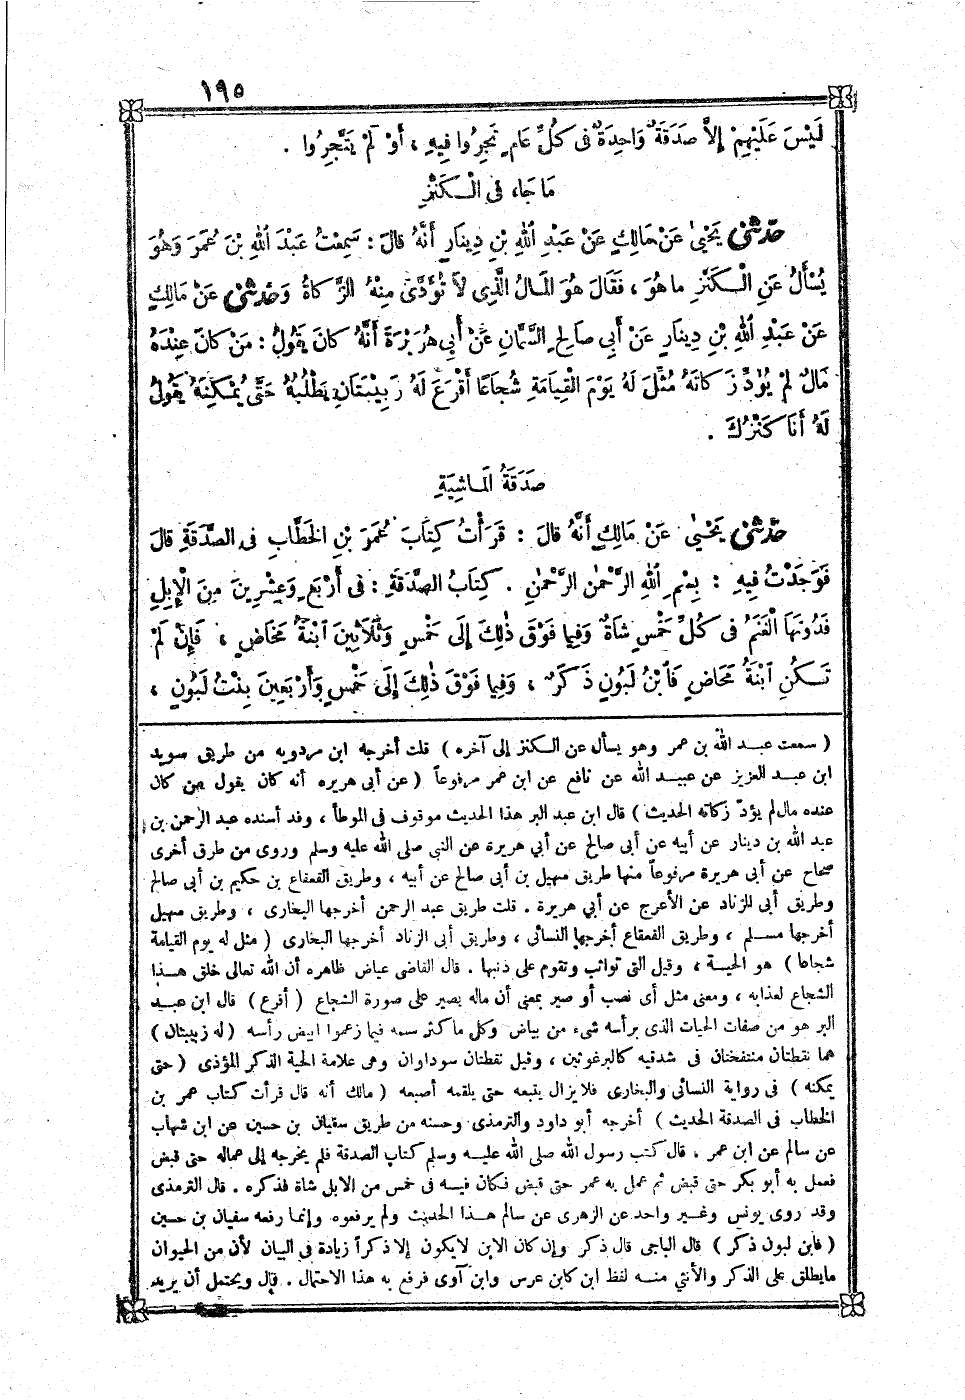 ١٩٥
لَيْسَ عَلَيْهِمْ إِلاَّ صَدَقَةٌ وَاحِدَةٌ فى كُلِّ عَامٍ تَجِرُوا فِيهِ ، أَوْ لَمْ يَتَّجِرُوا .
مَا جَاءَ فى الْكَنْزِ
حدّثنى يَحْيَى عَنْ مَالِكٍ عَنْ عَبْدِ اللهِ بْنِ دِينَارٍ أَنَّهُ قَالَ : سَمِعْتُ عَبْدَ اللهِ بْنَ عُمَرَ وَهُوَ
يُسْأَلُ عَنِ الْكَنْزِ مَا هُوَ ، فَقَالَ هُوَ الْمَالُ الَّذِى لاَ تُؤَدَّى مِنْهُ الزَّكَاةُ وَحدّثنى عَنْ مَالِكٍ
عَنْ عَبْدِ اللهِ بْنِ دِينَارٍ عَنْ أَبِى صَالِحٍ السَّمَّانِ عَنْ أَبِى هُرَيْرَةَ أَنَّهُ كَانَ يَقُولُ : مَنْ كَانَ عِنْدَهُ
مَالٌ لَمْ يُؤَدِّ زَكَاتَهُ مُثِّلَ لَهُ يَوْمَ الْقِيَامَةِ شُجَاعًا أَقْرَعَ لَهُ زَبِيبَتَانِ يَطْلُبُهُ حَتَّى يُمْكِنَهُ يَقُولُ
لَهُ أَنَا كَنْزُكَ .
صَدَقَةُ الْمَاشِيَةِ
حدّثنى يَحْيَى عَنْ مَالِكٍ أَنَّهُ قَالَ : قَرَأْتُ كِتَابَ عُمَرَ بْنِ الْخَطَّابِ فى الصَّدَقَةِ قَالَ
فَوَجَدْتُ فِيهِ : بِسْمِ اللهِ الرَّحْمٰنِ الرَّحْمٰنِ . كِتَابُ الصَّدَقَةِ : فى أَرْبَعٍ وَعِشْرِينَ مِنَ الْإِبِلِ
فَدُونَهَا الْغَنَمُ فى كُلِّ خَمْسٍ شَاةٌ وَفِيمَا فَوْقَ ذٰلِكَ إِلَى خَمْسٍ وَثَلاَثِينَ ابْنَةُ مَخَاضٍ ، فَإِنْ لَمْ
تَكُنِ ابْنَةُ مَخَاضٍ فَابْنُ لَبُونٍ ذَكَرٌ ، وَفِيمَا فَوْقَ ذٰلِكَ إِلَى خَمْسٍ وَأَرْبَعِينَ بِنْتُ لَبُونٍ ،
( سمعت عبد الله بن عمر وهو يسأل عن الكنز إلى آخره ) قلت أخرجه ابن مردويه من طريق سويد
ابن عبد العزيز عن عبيد الله عن نافع عن ابن عمر مرفوعاً ( عن أبى هريره أنه كان يقول من كان
عنده مال لم يؤدّ زكاته الحديث ) قال ابن عبد البر هذا الحديث موقوف فى الموطأ ، وقد أسنده عبد الرحمن بن
عبد الله بن دينار عن أبيه عن أبى صالح عن أبي هريرة عن النبى صلى الله عليه وسلم وروى من طرق أخرى
صحاح عن أبى هريرة مرفوعاً منها طريق سهيل بن أبى صالح عن أبيه ، وطريق القعقاع بن حكيم بن أبى صالح
وطريق أبى الزناد عن الأعرج عن أبي هريرة . قلت طريق عبد الرحمن أخرجها البخارى ، وطريق سهيل
أخرجها مسلم ، وطريق القعقاع أخرجها النسائى ، وطريق أبى الزناد أخرجها البخارى ( مثل له يوم القيامة
شجاعا ) هو الحية ، وقيل التى تواثب وتقوم على ذنبها . قال القاضى عياض ظاهره أن الله تعالى خلق هذا
الشجاع لعذابه ، ومعنى مثل أى نصب أو صير بمعنى أن ماله يصير على صورة الشجاع ( أقرع ) قال ابن عبد
البر هو من صفات الحيات الذى برأسه شىء من بياض وكل ما كثر سمه فيما زعموا ابيض رأسه ( له زبيبتان )
هما نقطتان منتفختان فى شدقيه كالبرغوثين ، وقيل نقطتان سوداوان وهى علامة الحية الذكر المؤذى ( حتى
يمكنه ) فى رواية النسائى والبخارى فلا يزال يتبعه حتى يلقمه أصبعه ( مالك أنه قال قرأت كتاب عمر بن
الخطاب فى الصدقة الحديث ) أخرجه أبو داود والترمذى وحسنه من طريق سفيان بن حسين عن ابن شهاب
عن سالم عن ابن عمر ، قال كتب رسول الله صلى الله عليه وسلم كتاب الصدقة فلم يخرجه إلى عماله حتى قبض
فعمل به أبو بكر حتى قبض ثم عمل به عمر حتى قبض فكان فيه فى خمس من الابل شاة فذكره . قال الترمذى
وقد روى يونس وغير واحد عن الزهرى عن سالم هذا الحديث ولم يرفعوه وإنما رفعه سفيان بن حسين
( فابن لبون ذكر ) قال الباجى قال ذكر وإن كان الابن لا يكون إلا ذكراً زيادة فى البيان لأن من الحيوان
مايطلق على الذكر والأنثى منه لفظ ابن كابن عرس وابن آوى فرفع به هذا الاحتمال . قال ويحتمل أن يريد